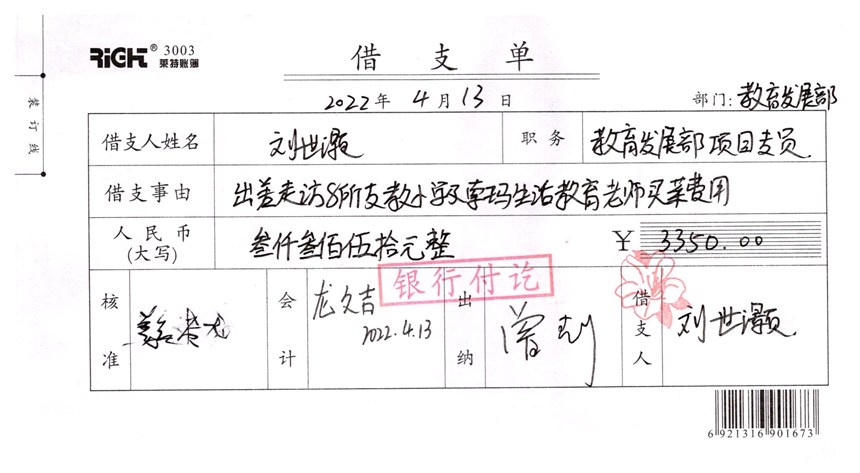 RiGHT® 3003
莱特账簿
借支单
2022年 4月13日
部门:教育发展部
装订线
借支人姓名 刘世灏 职务 教育发展部项目专员
借支事由 出差走访8所支教小学及索玛生活教育老师买菜费用
人民币(大写) 叁仟叁佰伍拾元整 ¥ 3350.00
银行付讫
核准
会计 龙久吉 2022.4.13
出纳
借支人 刘世灏
6 921316 901673